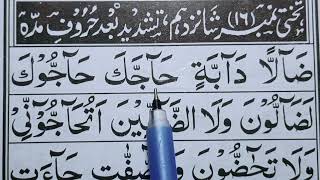 تختی نمبر (۱۶) شانزدہم، تشدید بعد حروف مدہ
ضَآلًّا دَآبَّةٍ حَآجَّكَ حَآجُّوْكَ
لَضَآلُّوْنَ وَلَا الضَّآلِّيْنَ اَتُحَآجُّوْنِّيْ
وَلَا تَحٰٓضُّوْنَ جَآءَتِ